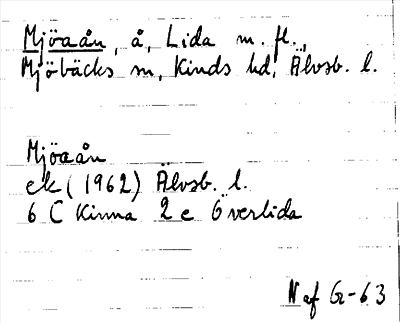 Mjöaån, å, Lida m. fl.,
Mjöbäcks sn, Kinds hd, Älvsb. l.
Mjöaån
ek (1962) Älvsb. l.
6 C Kinna 2 e Överlida
N af G-63